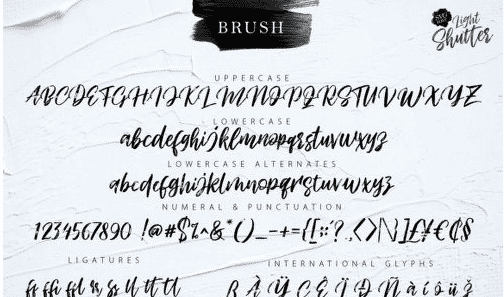 BRUSH
Light
Shutter
UPPERCASE
ABCDEFGHIJKLMNOPQRSTUVWXYZ
LOWERCASE
abcdefghijklmnopqrstuvwxyz
LOWERCASE ALTERNATES
abcdefghijklmnopqrstuvwxyz
NUMERAL & PUNCTUATION
1234567890 !@#$%^&*()_-+={[:;'?.,<>\]£¥€₵$
LIGATURES
INTERNATIONAL GLYPHS